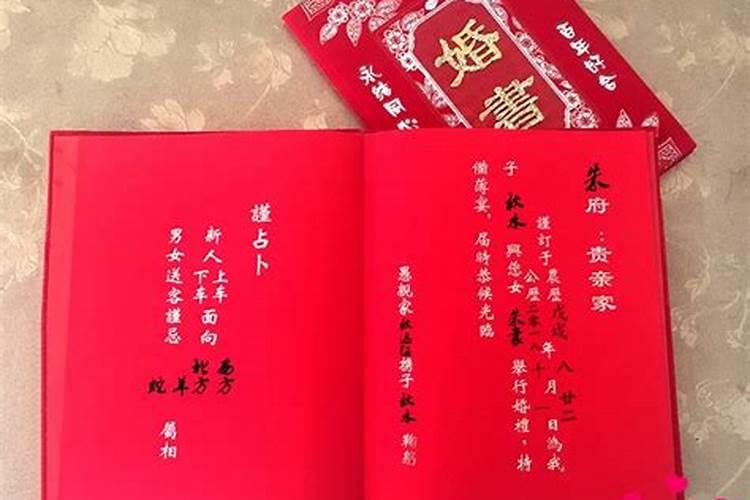 婚書
百年好合
永結同
朱府：贵亲家
謹訂于農歷戊戌年八月廿二日為我
公歷二零一八 十 一
子秋木與您女朱 舉行婚禮，特
備薄宴，届時恭候光臨
愚親家秋 携子秋木 鞠躬
謹占卜
新人上车 面向 西方
下车 北方
男女送客謹忌 蛇 羊 屬相